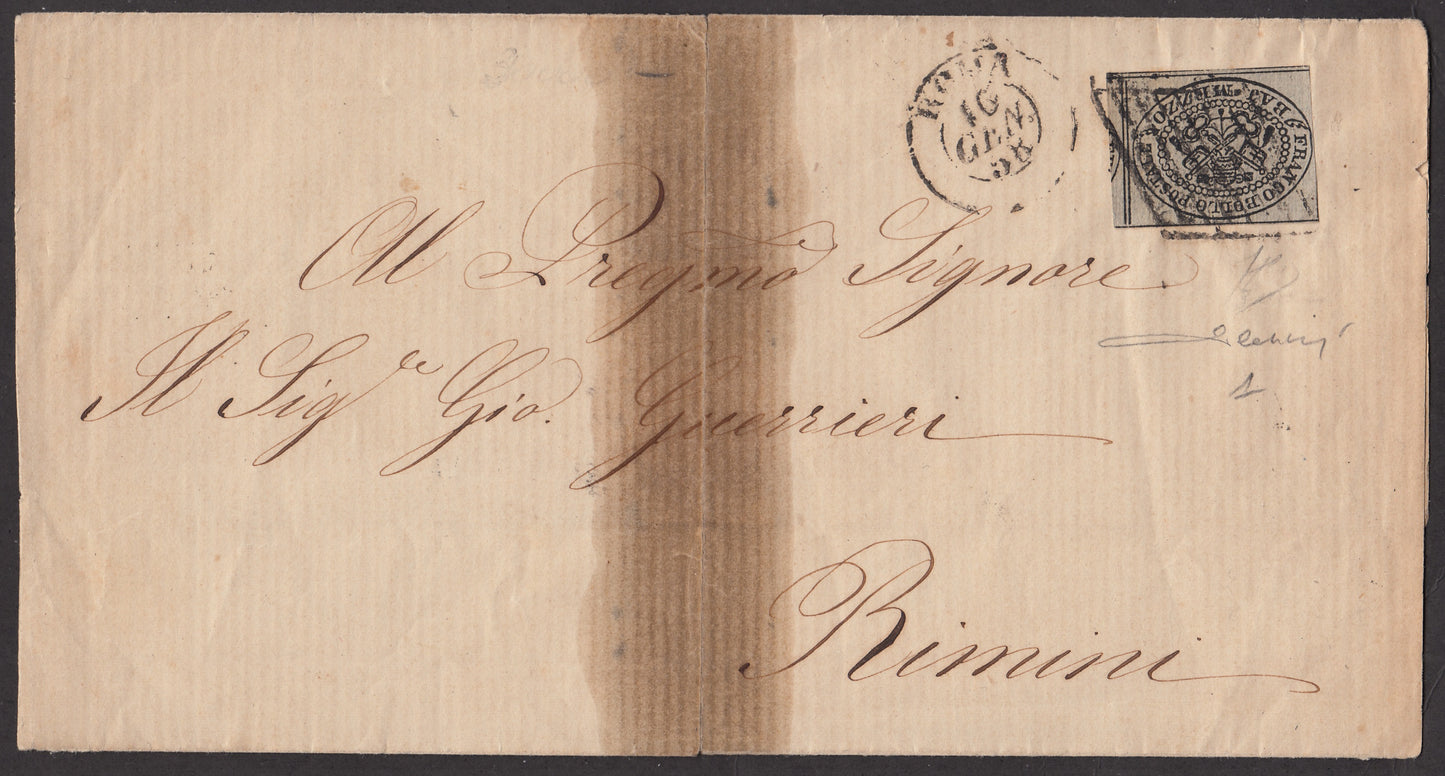 ROMA
16
GEN
58
FRANCO BOLLO POSTALE
BAJ
MEZZO
Al Pregmo Signore
Il Sigre Gio. Guerrieri
Rimini
1